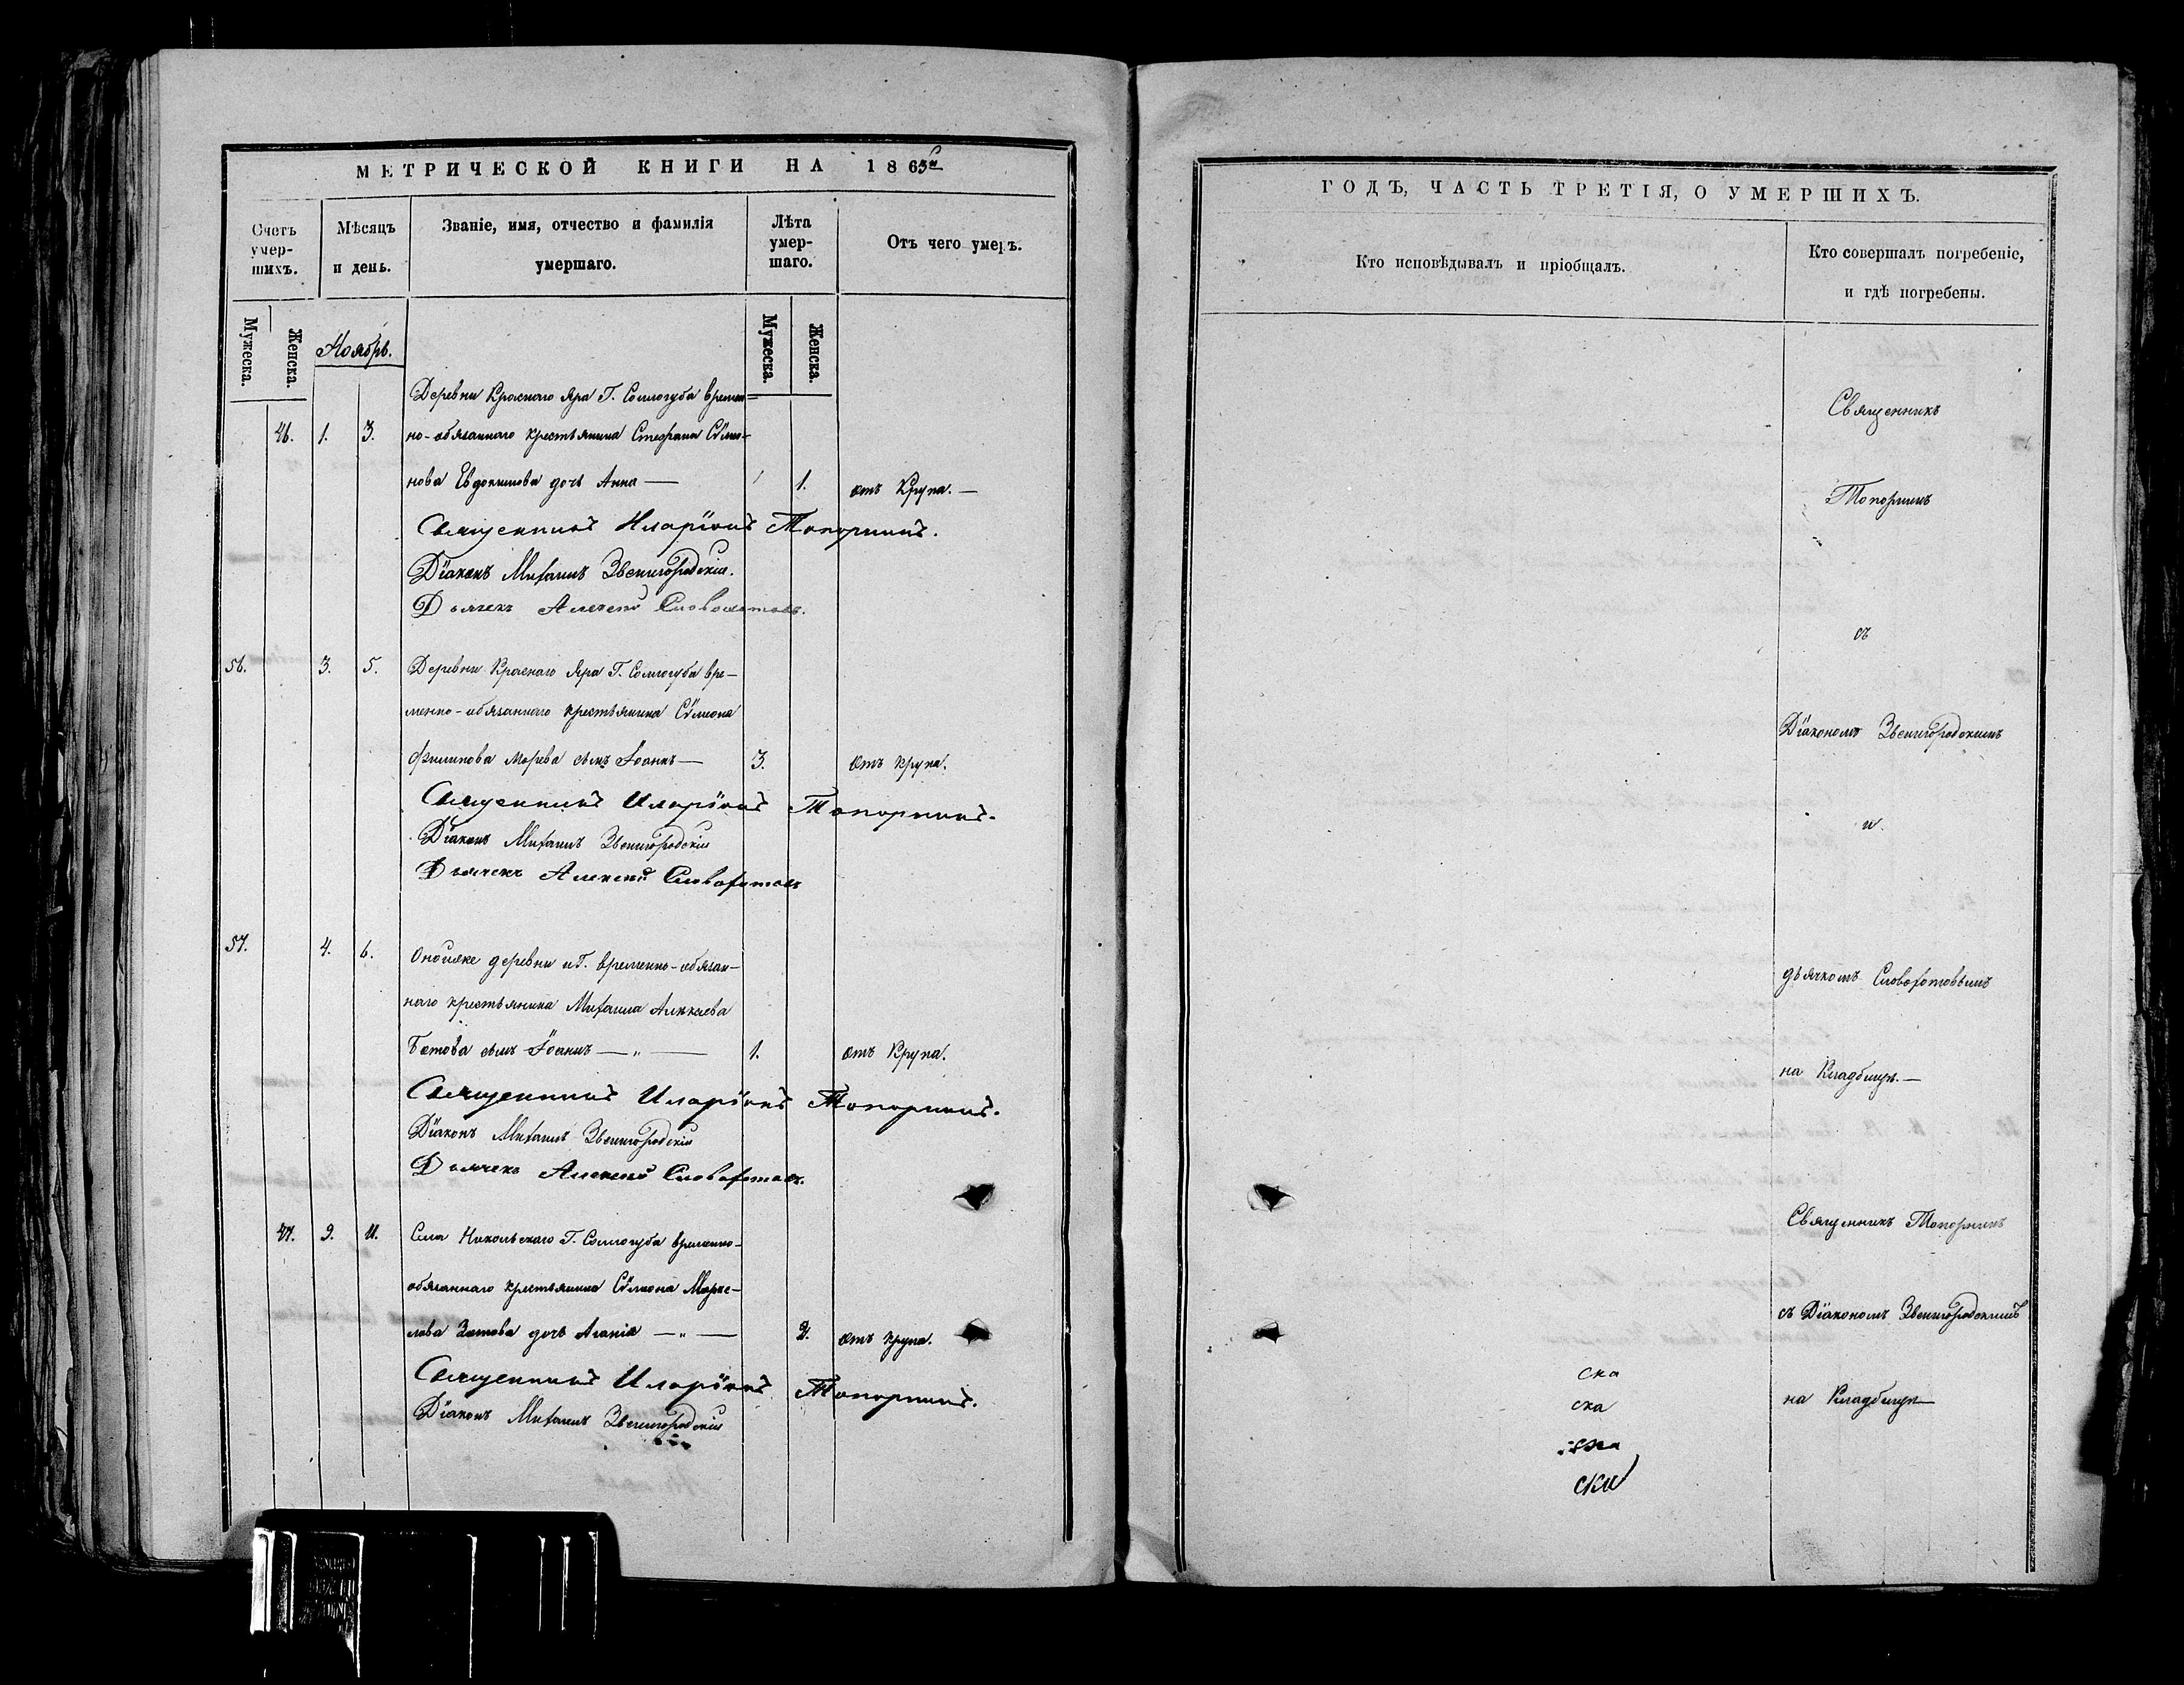 МЕТРИЧЕСКОЙ КНИГИ НА 1865й
Счетъ умершихъ.
Мѣсяцъ и день.
Званіе, имя, отчество и фамилія умершаго.
Лѣта умершаго.
Отъ чего умеръ.
Мужеска.
Женска.
Ноябрь.
Мужеска.
Женска.
Деревни Краснаго Яра Г. Соллогуба времен-
46. 1. 3. но-обязаннаго крестьянина Стефана Сѷмо-
нова Евдокимова дочь Анна — 1. отъ Крупа. —
Священникъ Иларіонъ Топорнинъ.
Діаконъ Михаилъ Звенигородскій.
Дьячекъ Алексей Словохотовъ.
56. 3. 5. Деревни Краснаго Яра Г. Соллогуба вре-
менно-обязаннаго крестьянина Сѷмеона
Филипова Морева сынъ Іоаннъ — 3. отъ крупа.
Священникъ Иларіонъ Топорнинъ.
Діаконъ Михаилъ Звенигородскій
Дьячекъ Алексей Словохотовъ
57. 4. 6. Оной же деревни и Г. временно-обязан-
наго крестьянина Михаила
сынъ Іоаннъ — „ — 1. отъ Крупа.
Священникъ Иларіонъ Топорнинъ.
Діаконъ Михаилъ Звенигородскій
Дьячекъ Алексей Словохотовъ.
47. 9. 11. Села Никольскаго Г. Соллогуба временно-
обязаннаго крестьянина Сѷмеона Марке-
лова Зотова дочь Агапія — „ — 2. отъ крупа.
Священникъ Иларіонъ Топорнинъ.
Діаконъ Михаилъ Звенигородскій
ГОДЪ, ЧАСТЬ ТРЕТІЯ, О УМЕРШИХЪ.
Кто исповѣдывалъ и пріобщалъ.
Кто совершалъ погребеніе,
и гдѣ погребены.
Священникъ
Топорнинъ
съ
Діакономъ Звенигородскимъ
и
дьячкомъ Словохотовымъ
на Кладбищѣ. —
Священникъ Топорнинъ
съ Діакономъ Звенигородскимъ
на Кладбищѣ —
ска
ска
ска
ски